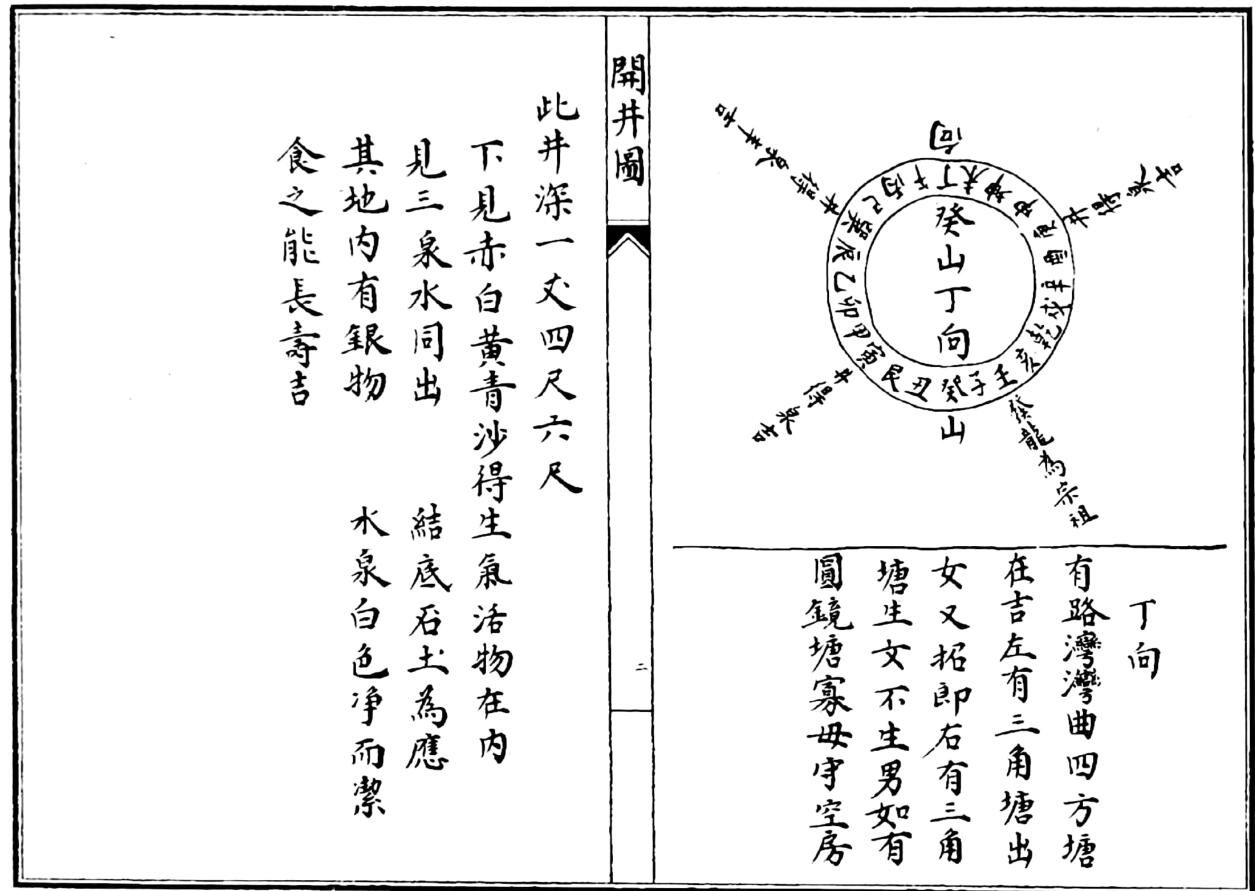 向
癸山丁向
子癸丑艮寅甲卯乙辰巽巳丙午丁未坤申庚酉辛戌乾亥壬
山
井得泉吉
井得泉井吉
井得泉吉
癸龍為宗祖
丁向
有路灣灣曲四方塘
在吉左有三角塘出
女又招即右有三角
塘生女不生男如有
圓鏡塘寡母守空房
開井圖
二
此井深一丈四尺六尺
下見赤白黃青沙得生氣活物在內
見三泉水同出 結底石土為應
其地內有銀物 水泉白色净而潔
食之能長壽吉